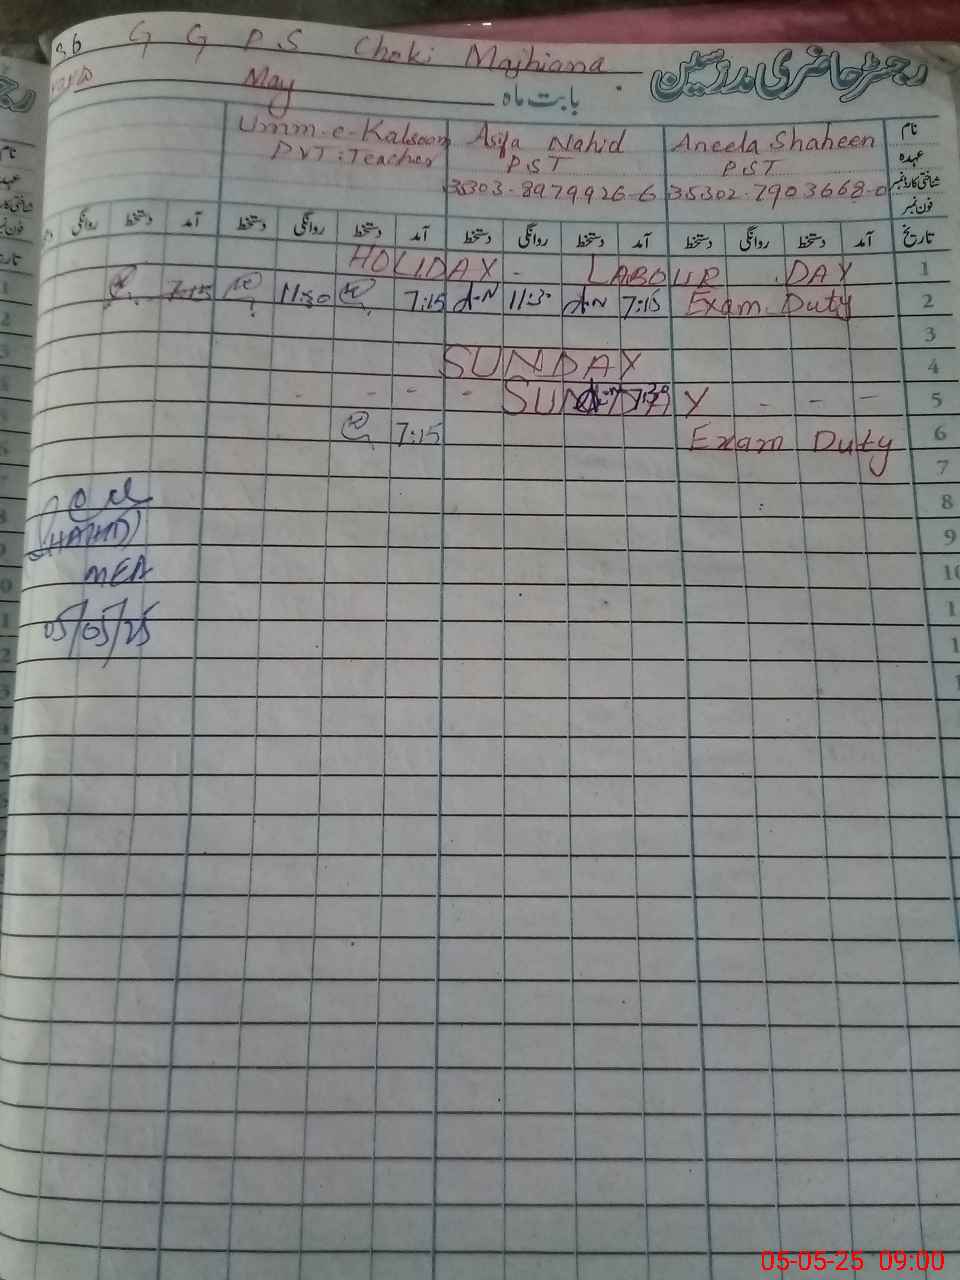 G G P.S Choki Majhiana رجسٹر حاضری مدرسین
May بابت ماہ
Umm-e-Kalsoom Asifa Nahid Aneela Shaheen نام
PVT: Teacher P.S.T P.S.T عہدہ
35303-8979926-6 35302-7903668-0 شناختی کارڈ نمبر
فون نمبر
تاریخ آمد دستخط روانگی دستخط آمد دستخط روانگی دستخط آمد دستخط روانگی دستخط آمد دستخط روانگی
HOLIDAY - LABOUR DAY 1
7:15 11:30 7:15 A.N 11:30 A.N 7:15 Exam Duty 2
3
SUNDAY 4
- - - - SUNDAY - - - 7:30 5
7:15 Exam Duty 6
7
8
9
MEA 10
05/05/25
05-05-25 09:00